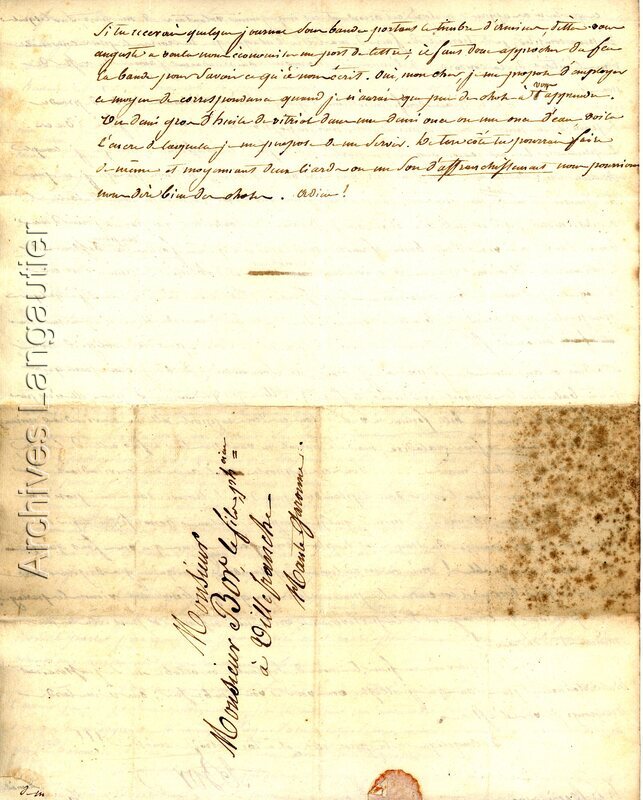 Si tu recevais quelque journal sous bande portant le timbre d'amiens, dittes vous
auguste a voulu nous économiser un port de lettre; il faut donc approcher du feu
la bande pour savoir ce qu'il nous écrit. Oui, mon cher, je me propose d'employer
ce moyen de correspondance quand je n'aurai que peu de chose à vous apprendre.
deux gros d'huile de vitriol dans une demi once ou une once d'eau voila
l'encre de laquelle je me propose de me servir. De ton côté tu pourras faire
de même et moyennant deux liards ou un sou d'affranchissement nous pourrions
nous dire bien des choses. Adieu!
Monsieur
Monsieur Bor, le fils ph.cien
à Villefranche
Haute Garonne.
Archives Langautier